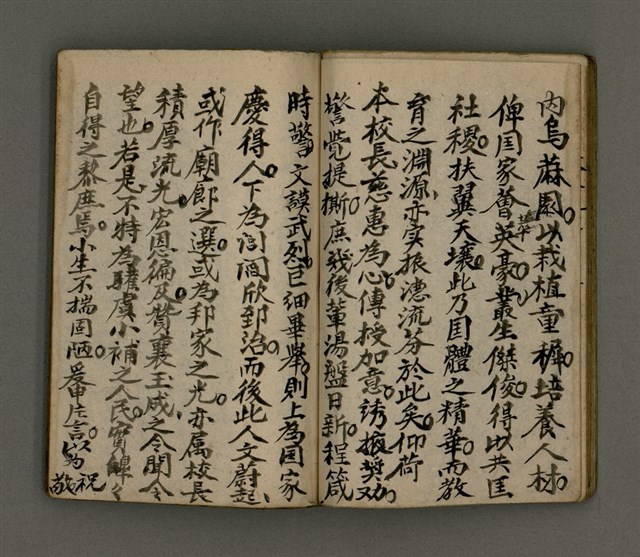 内烏蔴園以栽植童穉培養人材
俾国家薈萃英豪叢生傑俊得以共匡
社稷扶翼天壤此乃国體之精華而教
育之淵源亦实振德流芬於此矣仰荷
本校長慈惠為心傳授加意誘掖奨劝
警覺提撕庶幾後輩湯盤日新程箴
時警文謨武烈巨細畢舉則上為国家
慶得人下為閭閻欣郅治而後此人文蔚起
或作廟郎之選或為邦家之光亦属校長
積厚流光宏恩徧及賛襄玉成之令聞令
望也若是不特為驩虞小補之人民實皥々
自得之黎庶焉小生不揣固陋爰申片言以為
敬祝